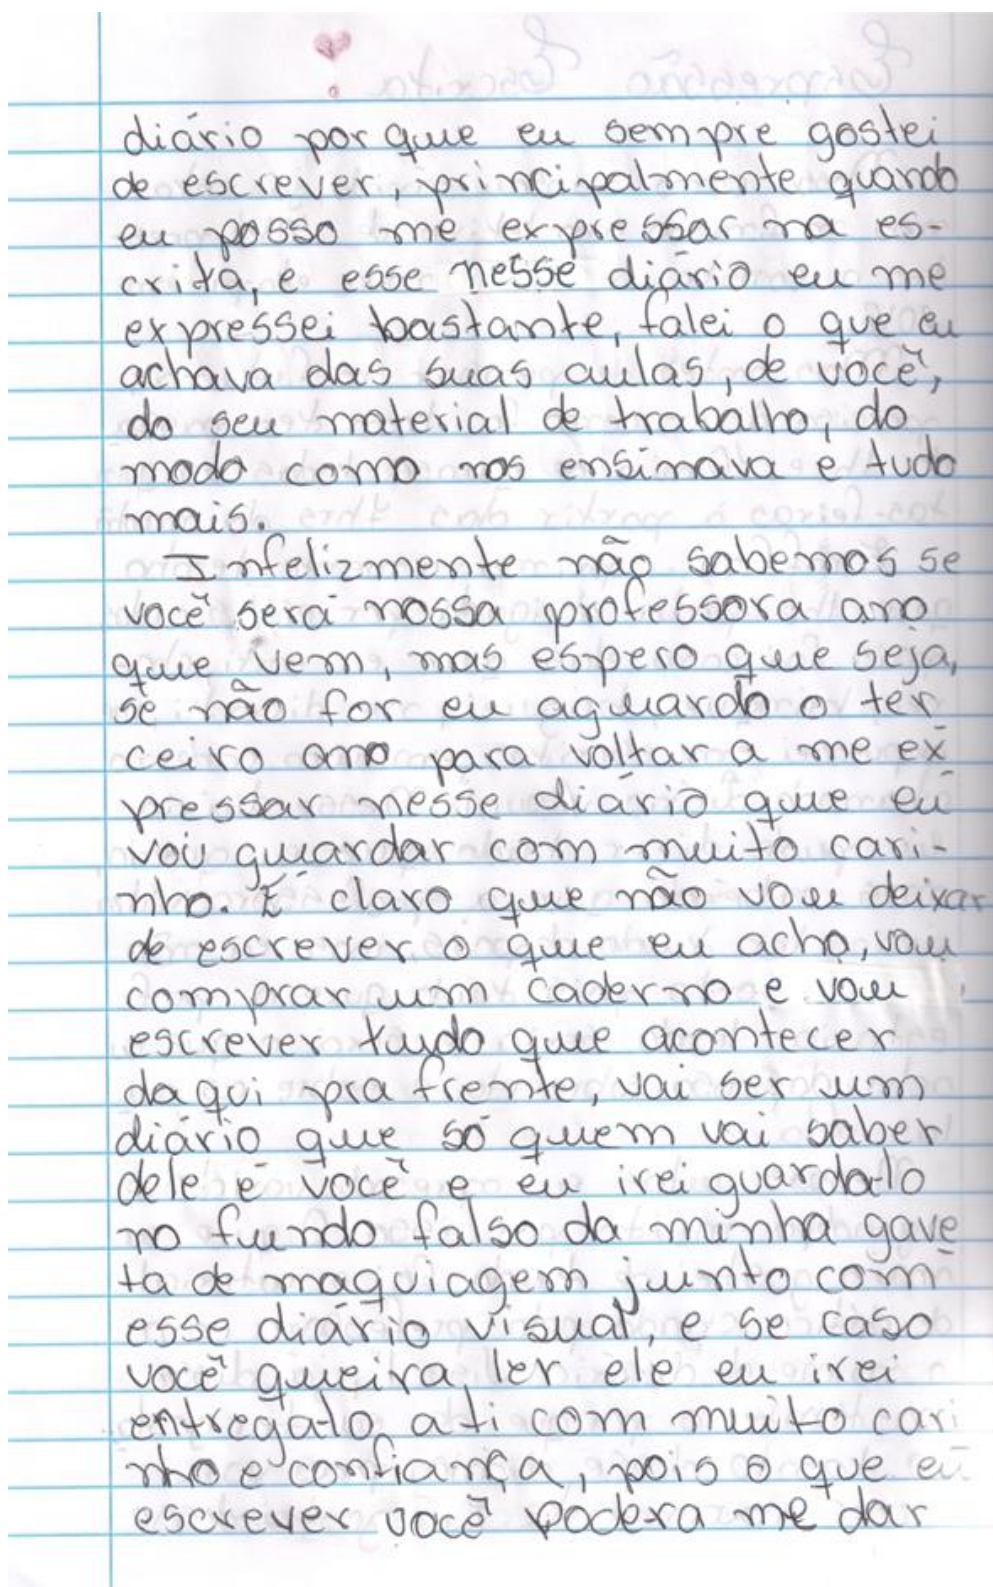 diário porque eu sempre gostei
de escrever, principalmente quando
eu posso me expressar na es-
crita, e esse nesse diário eu me
expressei bastante, falei o que eu
achava das suas aulas, de você,
do seu material de trabalho, do
modo como nos ensinava e tudo
mais.
Infelizmente não sabemos se
você será nossa professora ano
que vem, mas espero que seja,
se não for eu aguardo o ter
ceiro ano para voltar a me ex
pressar nesse diário que eu
vou guardar com muito cari-
nho. É claro que não vou deixar
de escrever o que eu acho, vou
comprar um caderno e vou
escrever tudo que acontecer
daqui pra frente, vai ser um
diário que só quem vai saber
dele é você e eu irei guarda-lo
no fundo falso da minha gave
ta de maquiagem junto com
esse diário visual, e se caso
você queira ler ele eu irei
entrega-lo a ti com muito cari
nho e confiança, pois o que eu
escrever você podera me dar